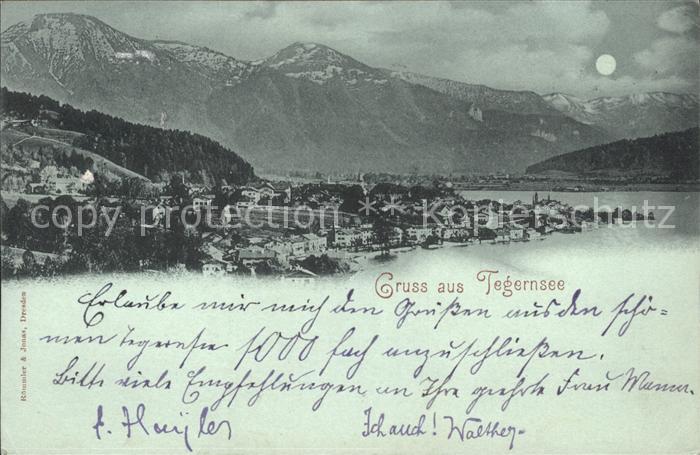 copy protection * Kopierschutz *
Gruss aus Tegernsee
Römmler & Jonas, Dresden
Erlaube mir mich den Grüßen aus den schö=
nen Tegernsee 1000 fach anzuschließen.
Bitte viele Empfehlungen an Ihre geehrte Frau Mama.
Ich auch! Walther